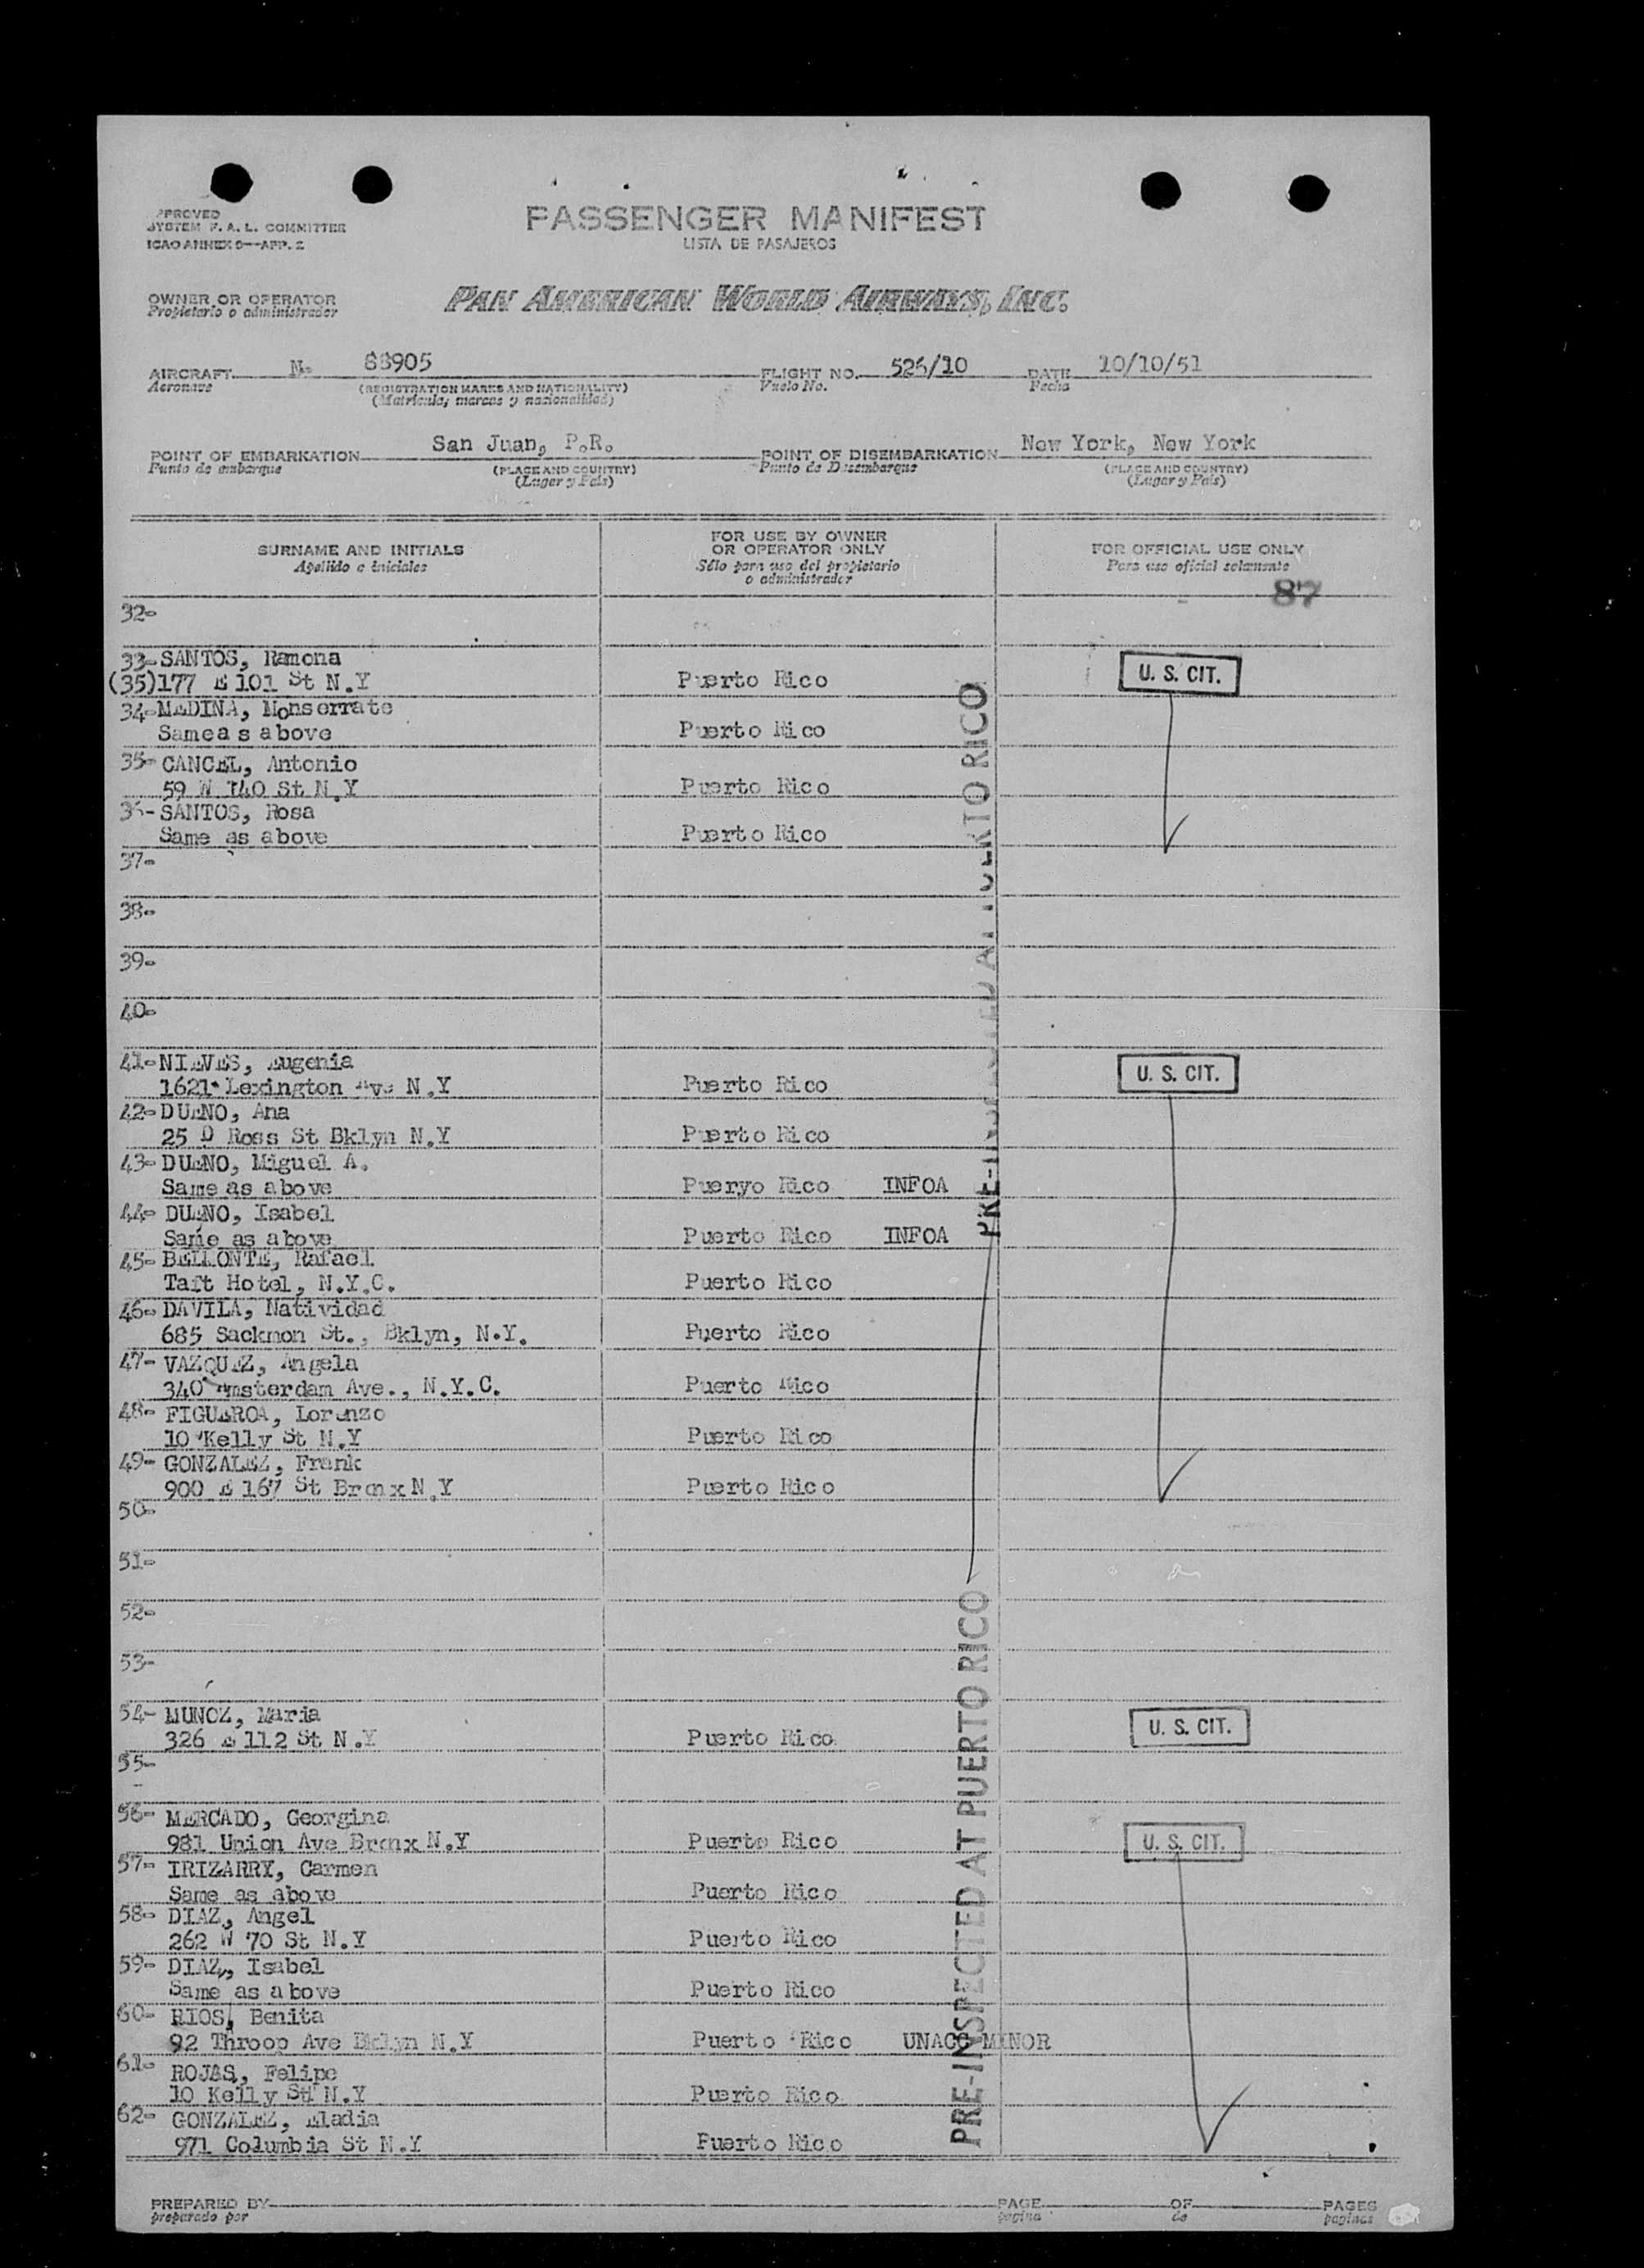 APPROVED
SYSTEM F. A. L. COMMITTEE
ICAO ANNEX 9—APP. 2
PASSENGER MANIFEST
LISTA DE PASAJEROS
OWNER OR OPERATOR
Propietario o administrador
PAN AMERICAN WORLD AIRWAYS, INC.
AIRCRAFT N. 88905 FLIGHT NO. 526/10 DATE 10/10/51
Aeronave (REGISTRATION MARKS AND NATIONALITY) Vuelo No. Fecha
(Matricula, marcas y nacionalidad)
POINT OF EMBARKATION San Juan, P.R. POINT OF DISEMBARKATION New York, New York
Punto de embarque (PLACE AND COUNTRY) Punto de Disembarque (PLACE AND COUNTRY)
(Lugar y País) (Lugar y País)
SURNAME AND INITIALS FOR USE BY OWNER OR OPERATOR ONLY FOR OFFICIAL USE ONLY
Apellido e iniciales Sólo para uso del propietario o administrador Para uso oficial solamente
87
32-
33- SANTOS, Ramona
(35)177 E 101 St N.Y Puerto Rico U. S. CIT.
34- MEDINA, Monserrate
Samea s above Puerto Rico
35- CANCEL, Antonio
59 W 140 St N.Y Puerto Rico
36- SANTOS, Rosa
Same as above Puerto Rico
37-
38-
39-
40-
41- NIEVES, Eugenia
1621 Lexington Ave N.Y Puerto Rico U. S. CIT.
42- DUENO, Ana
25 D Ross St Bklyn N.Y Puerto Rico
43- DUENO, Miguel A.
Same as above Pueryo Rico INFOA
44- DUENO, Isabel
Same as above Puerto Rico INFOA
45- BELLONTE, Rafael
Taft Hotel, N.Y.C. Puerto Rico
46- DAVILA, Natividad
685 Sackmon St., Bklyn, N.Y. Puerto Rico
47- VAZQUEZ, Angela
340 Amsterdam Ave., N.Y.C. Puerto Rico
48- FIGUEROA, Lorenzo
10 Kelly St N.Y Puerto Rico
49- GONZALEZ, Frank
900 E 167 St Bronx N.Y Puerto Rico
50-
51-
52-
53-
54- MUNOZ, Maria
326 E 112 St N.Y Puerto Rico U. S. CIT.
55-
56- MERCADO, Georgina
981 Union Ave Bronx N.Y Puerto Rico U. S. CIT.
57- IRIZARRY, Carmen
Same as above Puerto Rico
58- DIAZ, Angel
262 W 70 St N.Y Puerto Rico
59- DIAZ, Isabel
Same as above Puerto Rico
60- RIOS, Benita
92 Throop Ave Bklyn N.Y Puerto Rico UNACC MINOR
61- ROJAS, Felipe
10 Kelly St N.Y Puerto Rico
62- GONZALEZ, Eladia
971 Columbia St N.Y Puerto Rico
PRE-INSPECTED AT PUERTO RICO
PRE-INSPECTED AT PUERTO RICO
PREPARED BY PAGE OF PAGES
preparado por pagina de paginas